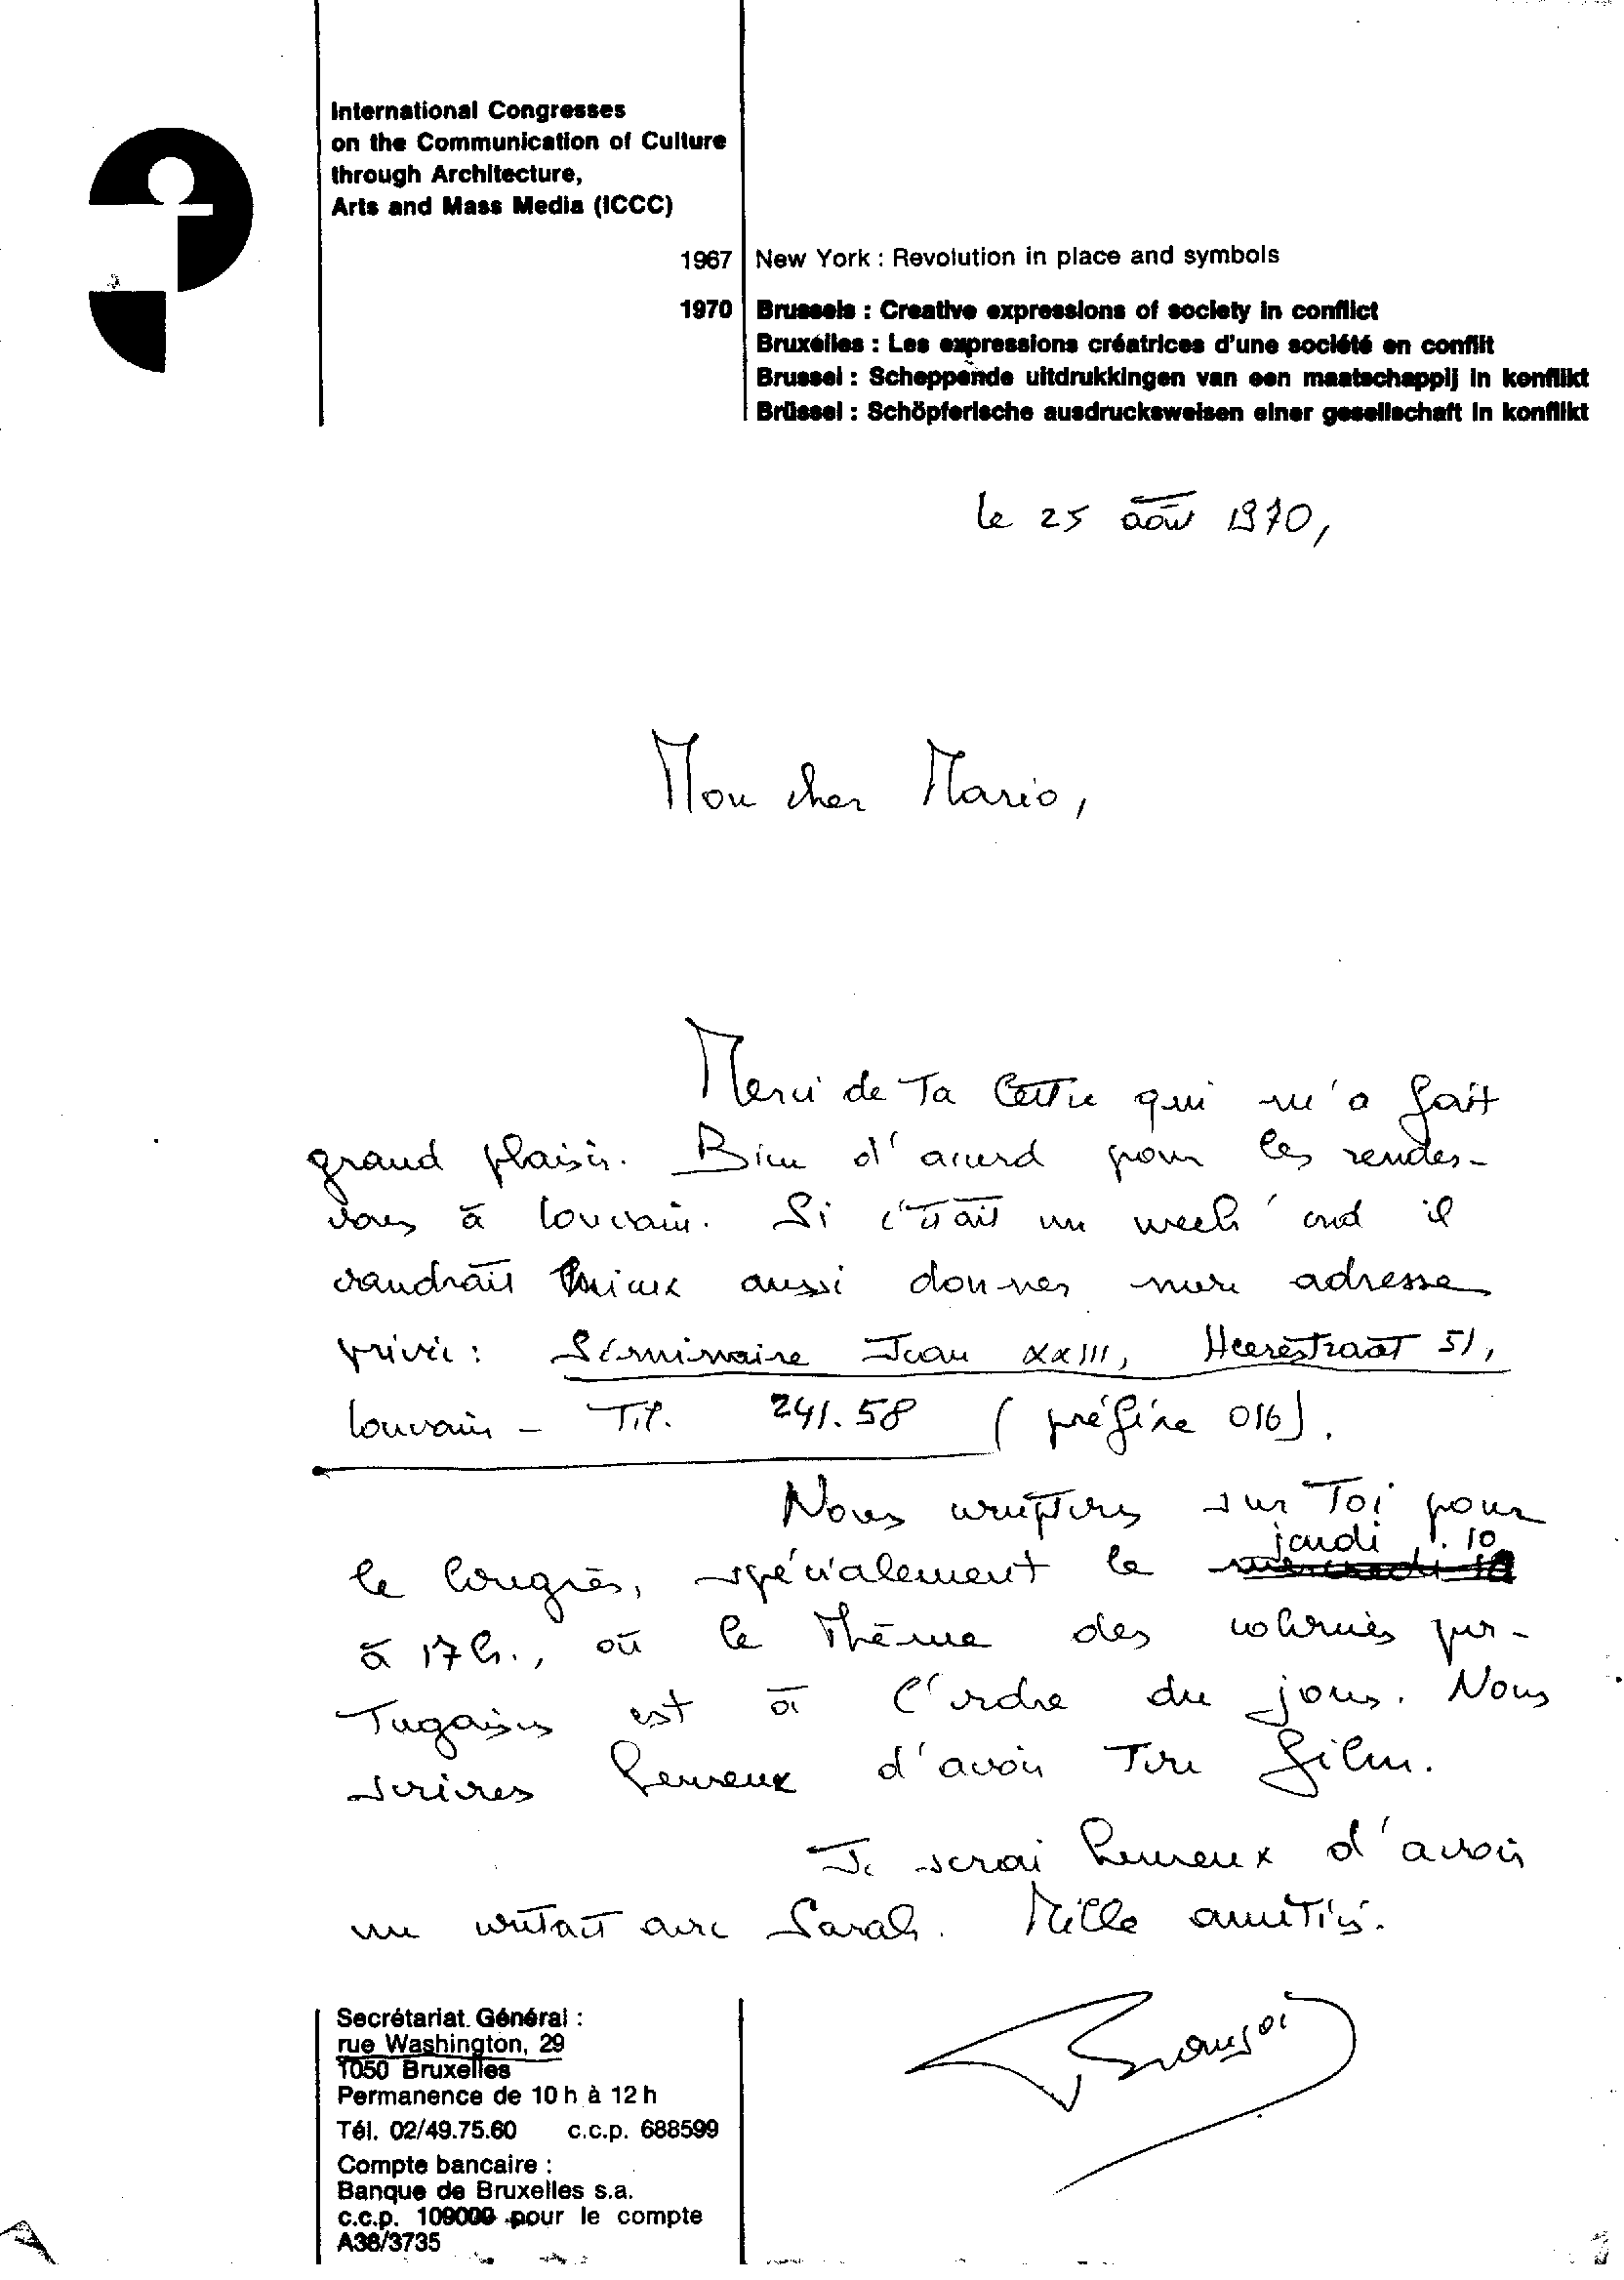 International Congresses
on the Communication of Culture
through Architecture,
Arts and Mass Media (ICCC)
1967 New York : Revolution in place and symbols
1970 Brussels : Creative expressions of society in conflict
Bruxelles : Les expressions créatrices d'une société en conflit
Brussel : Scheppende uitdrukkingen van een maatschappij in konflikt
Brüssel : Schöpferische ausdrucksweisen einer gesellschaft in konflikt
le 25 août 1970,
Mon cher Mario,
Merci de ta lettre qui m'a fait
grand plaisir. Bien d'accord pour les rendez-
vous à Louvain. Si c'était un week'end il
vaudrait mieux aussi donner mon adresse
privée : Séminaire Jean XXIII, Heerestraat 51,
Louvain - Tél. 241.58 (préfixe 016).
Nous comptons sur toi pour
le Congrès, spécialement le mercredi jeudi 10
à 17h., où le thème des colonies por-
tugaises est à l'ordre du jour. Nous
serions heureux d'avoir ton film.
Je serai heureux d'avoir
un contact avec Sarah. Mille amitiés.
François
Secrétariat Général :
rue Washington, 29
1050 Bruxelles
Permanence de 10 h à 12 h
Tél. 02/49.75.60 c.c.p. 688599
Compte bancaire :
Banque de Bruxelles s.a.
c.c.p. 109000 pour le compte
A38/3735